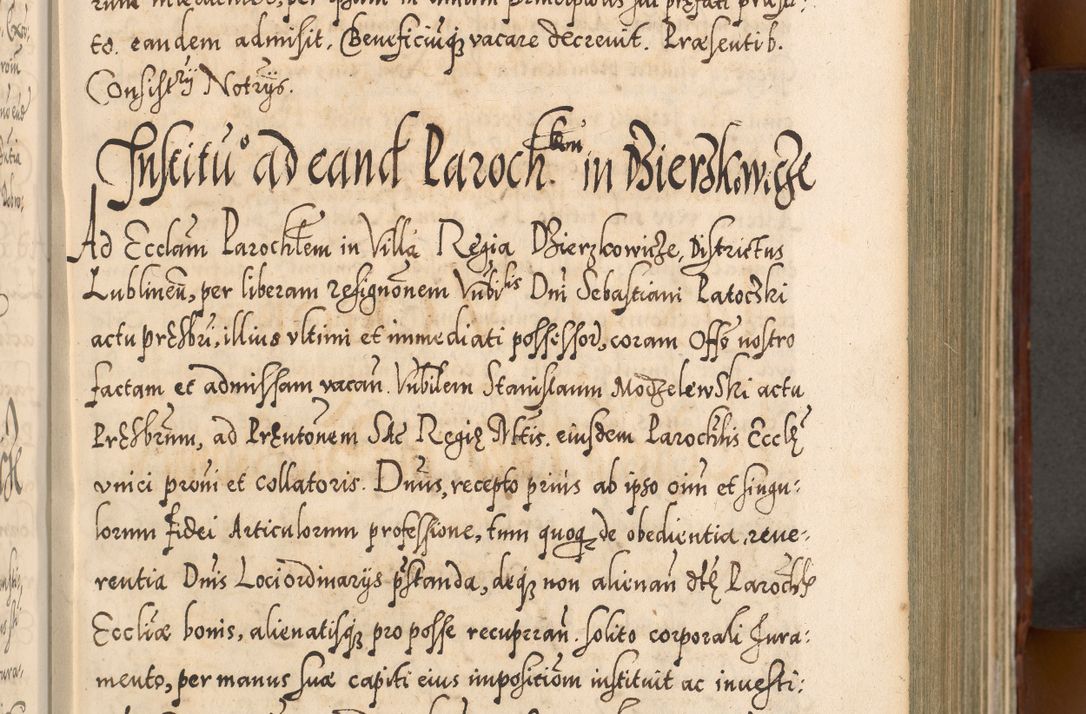 to. eandem admisit. Beneficiūq; vacare decrevit. Præsentib.
Consistrÿ Notrÿs.
Institũ° ad eand Paroch.lem in Dzierzkowicze
Ad Ecclam Parochlem in Villa Regia Dzierzkowicze, Districtus
Lublineñ, per liberam resignõnem Vnbilis Dni Sebastiani Patoczki
actu præsbri, illius vltimi et immediati possessor, coram Offõ nostro
factam et admissam vacañ. Vnbilem Stanislaum Modzelewski actu
Præsbrum, ad Præntõnem Sac Regię Mttis. eiusdem Parochlis Eccl̃ę
vnici proñi et collatoris. Dnũs, recepto prius ab ipso om̃i et singu:
lorum fidei Articulorum professione, tum quoq; de obedientia, reue:
rentia Dnis Lociordinarÿs p̃standa, deq; non alienañ dtę Parochlę
Eccliæ bonis, alienatisq; pro posse recuperañ. solito corporali Jura:
mento, per manus suæ capiti eius impositiõm instituit ac investi: